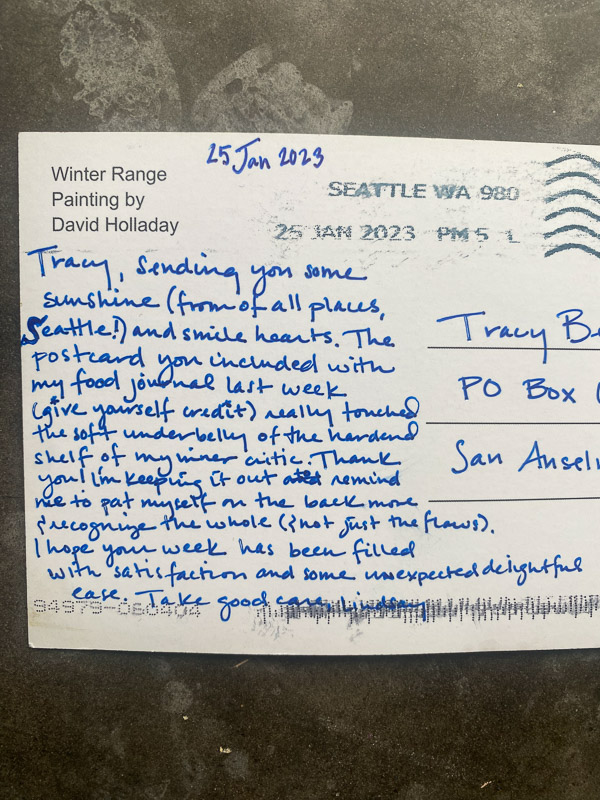 25 Jan 2023
Winter Range
Painting by
David Holladay
SEATTLE WA 980
25 JAN 2023 PM 5 L
Tracy, Sending you some
sunshine (from of all places,
Seattle!) and smile hearts. The
postcard you included with
my food journal last week
(give yourself credit) really touched
the soft underbelly of the hardend
shelf of my inner critic. Thank
you! I'm keeping it out remind
me to pat myself on the back more
& recognize the whole (& not just the flaws).
I hope your week has been filled
with satisfaction and some unexpected delightful
ease. Take good care, Lindsay
Tracy Be
PO Box
San Anseln
94979-060404